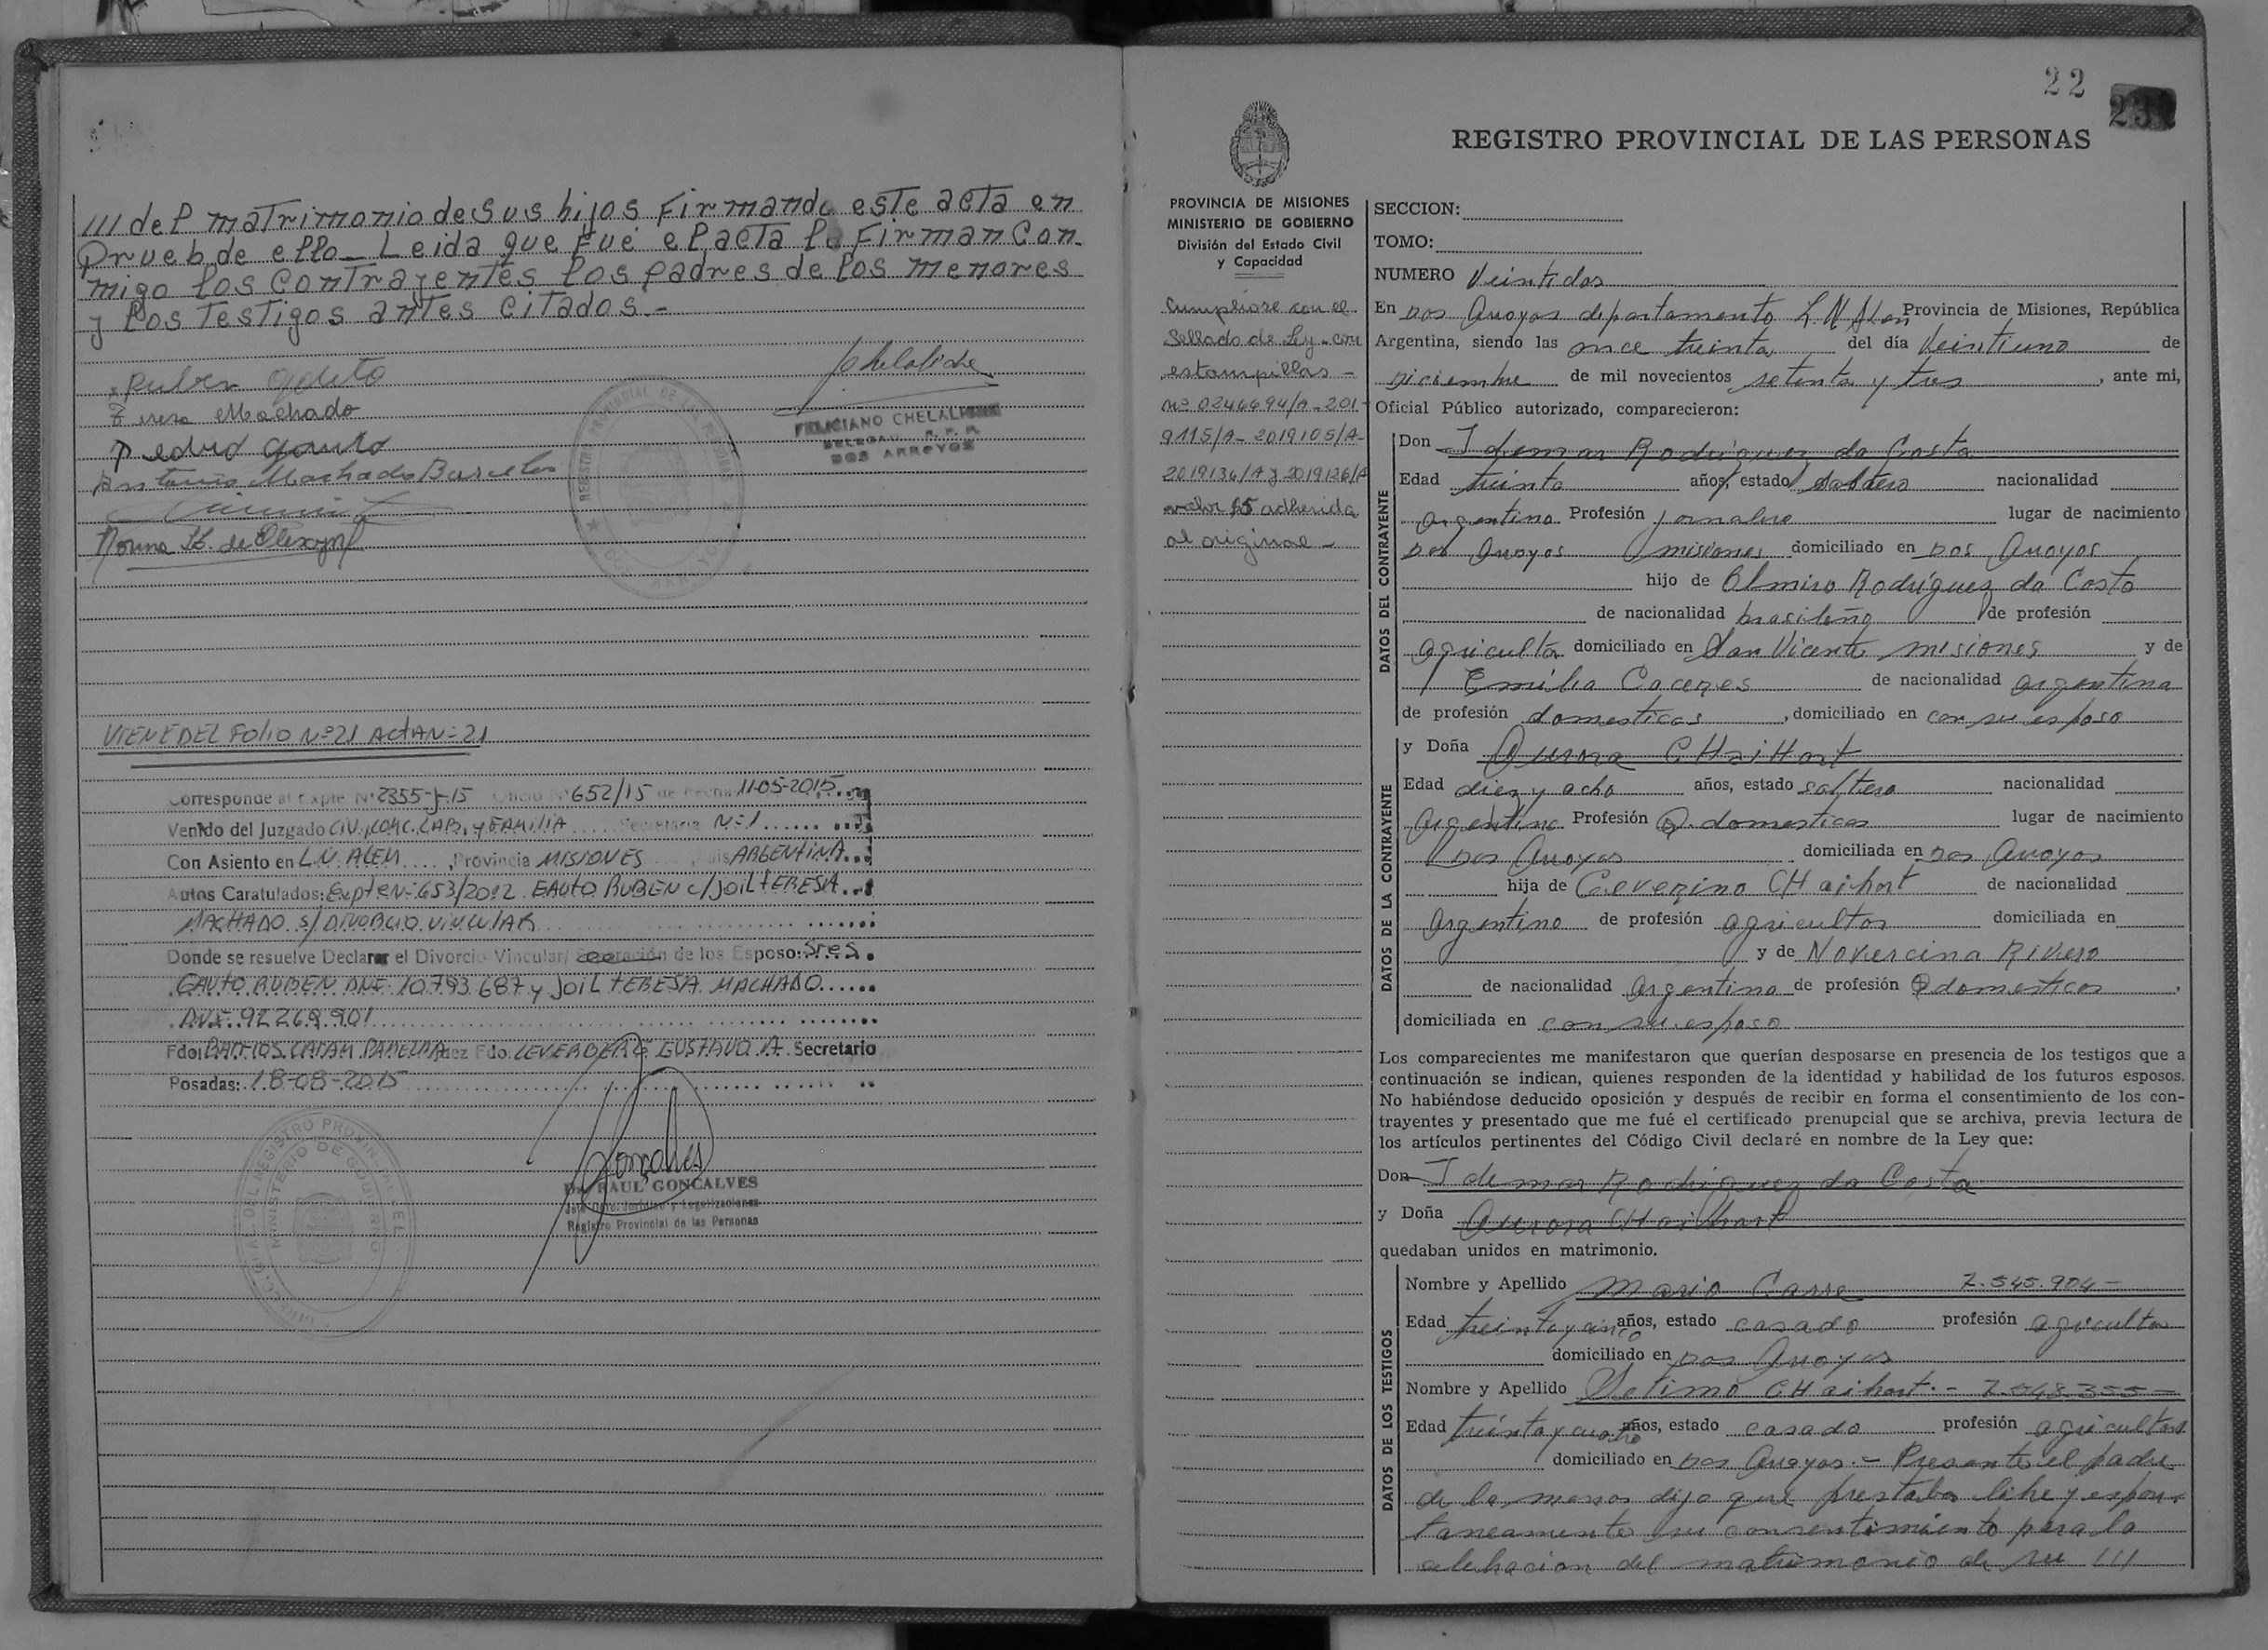 /// del matrimonio de sus hijos Firmando este acta en
Prueb de ello_ Leida que fué el acta la Firman Con
migo los contrayentes los padres de los menores
y los testigos antes citados.-
Ruben Gauto
Teresa Machado
Pedro Gauto
Antonio Machado Barcelos
Norma H. de
FELICIANO CHELALICHE
DELEGADO R. P. P.
DOS ARROYOS
REGISTRO PROVINCIAL DE LAS PERSONAS
DOS ARROYOS
VIENE DEL Folio Nº21 ActA Nº 21
Corresponde al Expte Nº 2355-J-15 Oficio Nº 652/15 de Fecha 11-05-2015
Venido del Juzgado CIV., COMC. LAB. y FAMILIA Secretaria Nº 1
Con Asiento en L.N. ALEM, Provincia MISIONES, Pais ARGENTINA
Autos Caratulados: Expte Nº 653/2012 GAUTO RUBEN c/ JOIL TERESA
MACHADO s/ DIVORCIO VINCULAR
Donde se resuelve Declarar el Divorcio Vincular/ Separación de los Esposo: Sres.
GAUTO RUBEN DNI: 10.793.687 y JOIL TERESA MACHADO
DNI: 92.269.901
Fdo: Juez Fdo. LEVERBERG GUSTAVO A. Secretario
Posadas: 18-08-2015
DIRECC. GRAL. DEL REGISTRO PROVINCIAL DE
MINISTERIO DE GOBIERNO
Goncalves
Dr. RAUL GONCALVES
Jefe Dpto. Jurídico y Legalizaciones
Registro Provincial de las Personas
22
REGISTRO PROVINCIAL DE LAS PERSONAS
PROVINCIA DE MISIONES
MINISTERIO DE GOBIERNO
División del Estado Civil
y Capacidad
Cumpliose con el
Sellado de Ley - con
estampillas -
Nº 0246694/A - 201-
9115/A - 2019105/A-
2019136/A y 2019126/A
valor 15 adherida
al original -
SECCION:
TOMO:
NUMERO Veintidos
En Dos Arroyos departamento L. N Alen Provincia de Misiones, República
Argentina, siendo las once treinta del día Veintiuno de
Diciembre de mil novecientos setenta y tres, ante mi,
Oficial Público autorizado, comparecieron:
DATOS DEL CONTRAYENTE
Don Idemar Rodriguez da Costa
Edad treinta años, estado soltero nacionalidad
argentino Profesión jornalero lugar de nacimiento
Dos Arroyos misiones domiciliado en Dos Arroyos
hijo de Almiro Rodríguez da Costa
de nacionalidad brasileño de profesión
agricultor domiciliado en San Vicente misiones y de
Emilia Caceres de nacionalidad argentina
de profesión domesticas, domiciliado en con su esposo
DATOS DE LA CONTRAYENTE
y Doña Aurora CHaiHart
Edad diez y ocho años, estado soltera nacionalidad
Argentina Profesión Q. domesticos lugar de nacimiento
Dos Arroyos domiciliada en Dos Arroyos
hija de Ceverino CHaihart de nacionalidad
argentino de profesión agricultor domiciliada en
y de Novercina Rivero
de nacionalidad argentina de profesión Q domesticos,
domiciliada en con su esposo
Los comparecientes me manifestaron que querían desposarse en presencia de los testigos que a
continuación se indican, quienes responden de la identidad y habilidad de los futuros esposos.
No habiéndose deducido oposición y después de recibir en forma el consentimiento de los con-
trayentes y presentado que me fué el certificado prenupcial que se archiva, previa lectura de
los artículos pertinentes del Código Civil declaré en nombre de la Ley que:
Don Idemar Rodriguez da Costa
y Doña Aurora CHaihart
quedaban unidos en matrimonio.
DATOS DE LOS TESTIGOS
Nombre y Apellido Mario Carre 7.545.904-
Edad treinta y cinco años, estado casado profesión agricultor
domiciliado en Dos Arroyos
Nombre y Apellido Setimo CHaihart.- 7.548.355-
Edad treinta y cuatro años, estado casado profesión agricultor
domiciliado en Dos Arroyos.- Presente el padre
de la menor dijo que prestaba libre y espon-
taneamente su consentimiento para la
celebracion del matrimonio de su ///